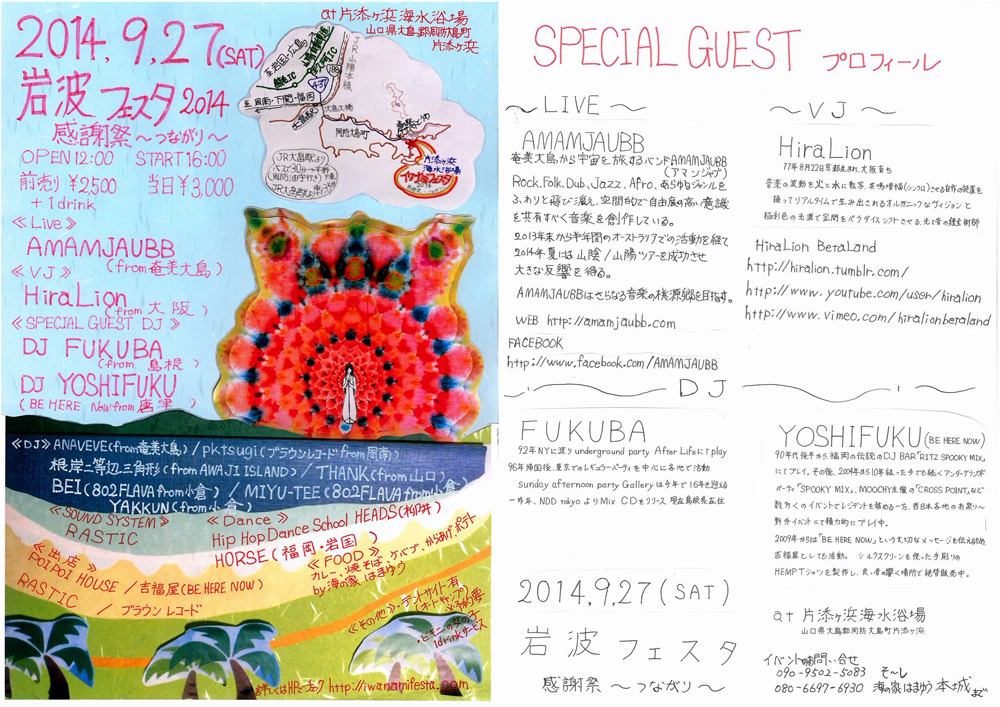 2014.9.27(SAT)
岩波フェスタ2014
感謝祭〜つながり〜
OPEN 12:00 START 16:00
前売り ¥2,500 当日 ¥3,000
+1drink
at 片添ヶ浜海水浴場
山口県大島郡周防大島町
片添ヶ浜
JR山陽本線
至 岩国・広島
至 周南・下関・福岡
大島大橋
周防大島町
437
188
片添ヶ浜
海水浴場
JR大島駅より
≪Live≫
AMAMJAUBB
(from 奄美大島)
≪VJ≫
HiraLion
(from 大阪)
≪SPECIAL GUEST DJ≫
DJ FUKUBA
(from 島根)
DJ YOSHIFUKU
(BE HERE Now from 唐津)
≪DJ≫ ANAVEVE(from奄美大島) / pktsugi(ブラウンレコードfrom周南)
根岸二等辺三角形(from AWAJI ISLAND) / THANK(from山口)
BEI(802FLAVA from小倉) / MIYU-TEE(802FLAVA from小倉)
YAKKUN(from小倉)
≪SOUND SYSTEM≫
RASTIC
≪Dance≫
Hip Hop Dance School HEADS(柳井)
HORSE(福岡・岩国)
≪出店≫
POIPOI HOUSE / 吉福屋(BE HERE NOW)
RASTIC / ブラウンレコード
≪FOOD≫
カレー、焼そば、ケバブ、からあげ、ポテト
by 海の家 はまゆう
≪その他≫・テントサイト有
1drinkサービス
詳しくはHPをチェック http://iwanamifesta.com
SPECIAL GUEST プロフィール
〜LIVE〜
AMAMJAUBB
奄美大島から宇宙を旅するバンドAMAMJAUBB
(アマンジャブ)
Rock、Folk、Dub、Jazz、Afro、あらゆるジャンルを
ふわりと飛び渡し、空間的で自由度の高い意識
を共有すべく音楽を創作している。
2013年末から半年間のオーストラリアでの活動を経て
2014年夏には山陰/山陽ツアーを成功させ
大きな反響を得る。
AMAMJAUBBはさらなる音楽の桃源郷を目指す。
WEB http://amamjaubb.com
FACEBOOK
http://www.facebook.com/AMAMJAUBB
〜VJ〜
HiraLion
77年8月22日京都生まれ、大阪育ち
音楽の波動を光と水に転写、共鳴増幅(シンクロ)させる自作の装置を
操ってリアルタイムで生み出されるオルガニックなヴィジョンと
極彩色の光源で空間をパラダイスシフトさせる、光と音の錬金術師
HiraLion BetaLand
http://hiralion.tumblr.com/
http://www.youtube.com/user/hiralion
http://www.vimeo.com/hiralionbetaland
〜DJ〜
FUKUBA
92年NYに渡りunderground party After Lifeにてplay
96年帰国後、東京でのレギュラーパーティを中心に各地で活動
Sunday afternoon party Galleryは今年で16年を迎える
一昨年、NDD tokyoよりMix CDをリリース 現在島根県在住
YOSHIFUKU(BE HERE NOW)
90年代後半から福岡の伝説のDJ BAR「RITZ SPOOKY MIX」
にてプレイ。その後、2004年から10年経った今でも続くアンダーグラウンド
パーティ「SPOOKY MIX」、MOOCHY主催の「CROSS POINT」など
数多くのイベントでレジデントを務める一方、西日本各地のお祭り〜
野外イベントにて精力的にプレイ中。
2009年からは「BE HERE NOW」という大切なメッセージを伝えるため
吉福屋としても活動。シルクスクリーンを使った手刷りの
HEMP Tシャツを製作し、良い音の響く場所で絶賛販売中。
2014.9.27(SAT)
岩波フェスタ
感謝祭〜つながり〜
at 片添ヶ浜海水浴場
山口県大島郡周防大島町片添ヶ浜
イベントのお問い合せ
090-9502-5083 そ〜し
080-6697-6930 海の家はまゆう 本城まで